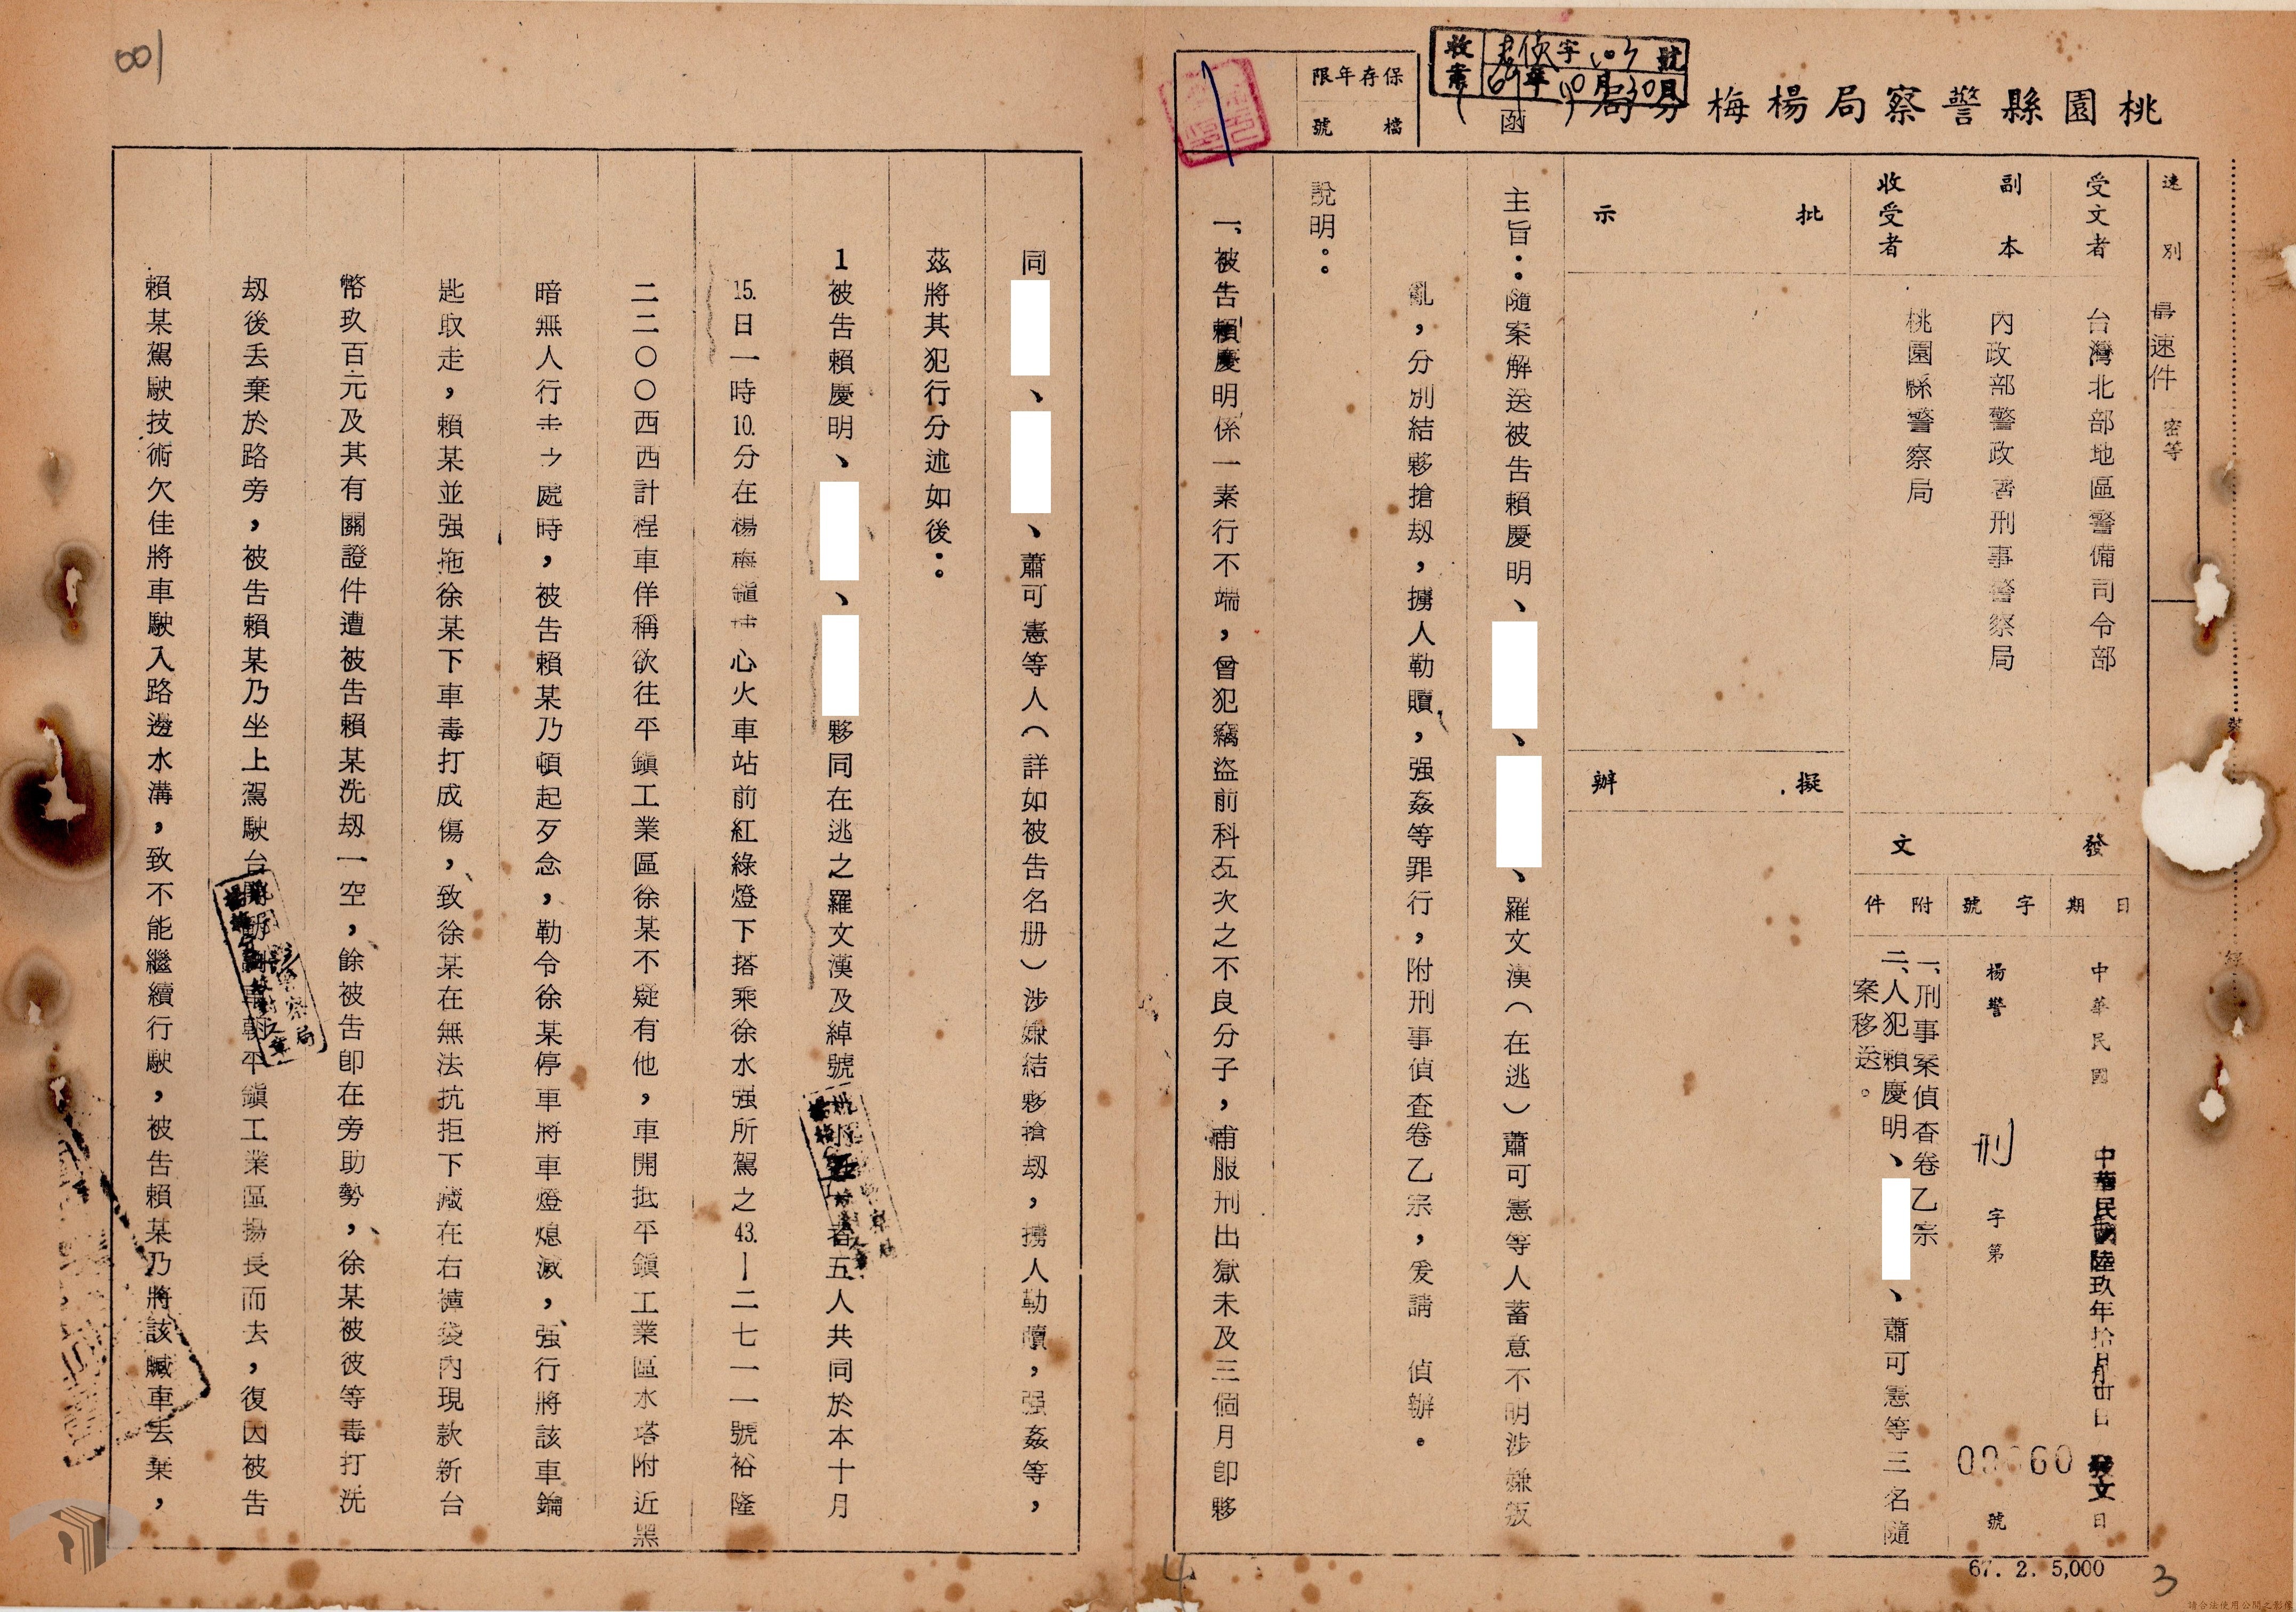 桃園縣警察局楊梅分局
（函）
收案
字103號
69年10月30日
保存年限
檔號
速別
最速件
密等
受文者
台灣北部地區警備司令部
副本收受者
內政部警政署刑事警察局
桃園縣警察局
批示
擬辦
發文
日期
中華民國
中華民國陸玖年拾月卅日發文
日
字號
楊警刑字第
號
附件
一、刑事案偵查卷乙宗
二、人犯賴慶明、
、蕭可憲等三名隨
案移送。
主旨：隨案解送被告賴慶明、
、
、羅文漢（在逃）蕭可憲等人蓄意不明涉嫌叛
亂，分別結夥搶刼，擄人勒贖，强姦等罪行，附刑事偵查卷乙宗，爰請　偵辦。
說明：
一、被告賴慶明係一素行不端，曾犯竊盜前科五次之不良分子，甫服刑出獄未及三個月卽夥
同
、
、蕭可憲等人（詳如被告名册）涉嫌結夥搶刼，擄人勒贖，强姦等，
茲將其犯行分述如後：
1被告賴慶明、
、
夥同在逃之羅文漢及綽號
者五人共同於本十月
15.日一時10.分在楊梅鎮埔心火車站前紅綠燈下搭乘徐水强所駕之43.—二七一一號裕隆
二二〇〇西西計程車佯稱欲往平鎮工業區徐某不疑有他，車開抵平鎮工業區水塔附近黑
暗無人行走之處時，被告賴某乃頓起歹念，勒令徐某停車將車燈熄滅，强行將該車鑰
匙取走，賴某並强拖徐某下車毒打成傷，致徐某在無法抗拒下藏在右褲袋內現款新台
幣玖百元及其有關證件遭被告賴某洗刼一空，餘被告卽在旁助勢，徐某被彼等毒打洗
刼後丢棄於路旁，被告賴某乃坐上駕駛台開動車朝平鎮工業區揚長而去，復因被告
賴某駕駛技術欠佳將車駛入路邊水溝，致不能繼續行駛，被告賴某乃將該贓車丢棄，
001
67. 2. 5,000
4
3
請合法使用公開之影像